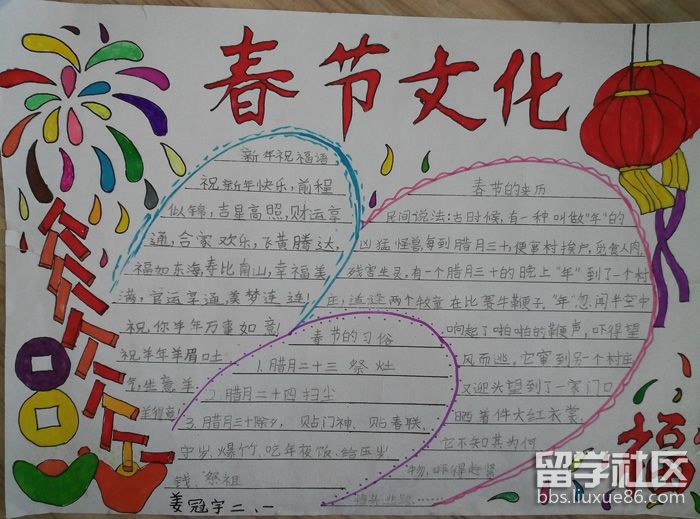 春节文化
新年祝福语
祝新年快乐，前程
似锦，吉星高照，财运亨
通，合家欢乐，飞黄腾达，
福如东海，寿比南山，幸福美
满，官运亨通，美梦连连！
祝：你羊年万事如意
祝羊年羊眉吐
气，生意羊
羊得意！
春节的来历
民间说法：古时候，有一种叫做"年"的
凶猛怪兽，每到腊月三十，便窜村挨户，觅食人肉，
残害生灵，有一个腊月三十的晚上"年"到了一个村
庄，适逢两个牧童在比赛牛鞭子。"年"忽闻半空中
响起了啪啪的鞭声，吓得望
风而逃，它窜到另一个村庄
又迎头望到了一家门口
晒着件大红衣裳
它不知其为何
物，吓得赶紧
掉头逃跑……
春节的习俗
1.腊月二十三 祭灶
2.腊月二十四扫尘
3.腊月三十除夕，贴门神、贴春联、
守岁、爆竹、吃年夜饭、给压岁
钱、祭祖
福
姜冠宇二、一
留学社区
bbs.liuxue86.com